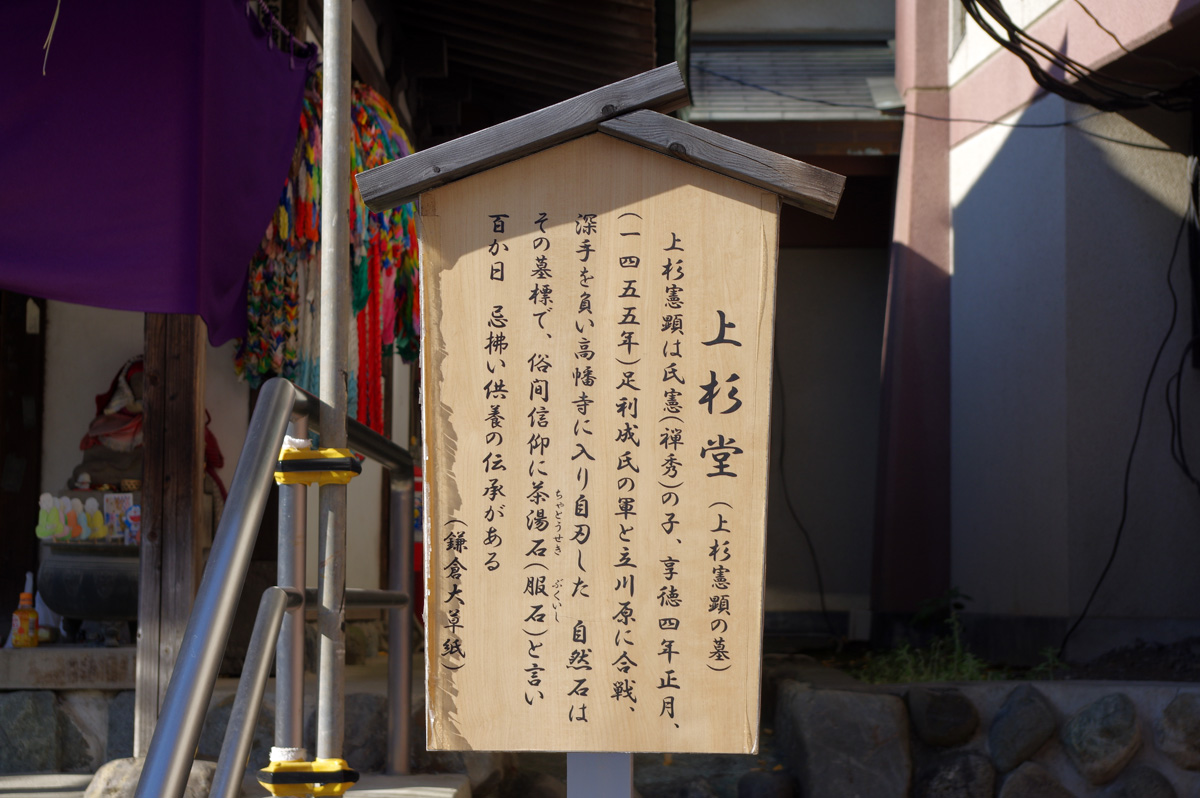 上杉堂(上杉憲顕の墓)
上杉憲顕は氏憲(禅秀)の子、享徳四年正月、
(一四五五年)足利成氏の軍と立川原に合戦、
深手を負い高幡寺に入り自刃した 自然石は
その墓標で、俗间信仰に茶湯石(服石)と言い
ちゃとうせき ぶくいし
百か日 忌拂い供養の伝承がある
(鎌倉大草紙)